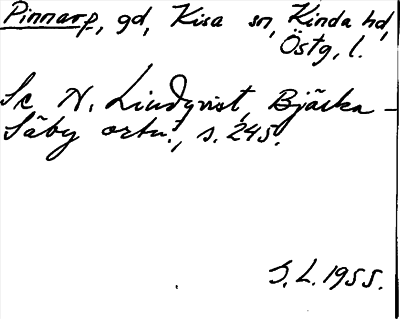 Pinnarp, gd, Kisa sn, Kinda hd,
Östg. l.
Se N. Lindqvist, Bjärka-
Säby ortn., s. 245.
S. L. 1955.